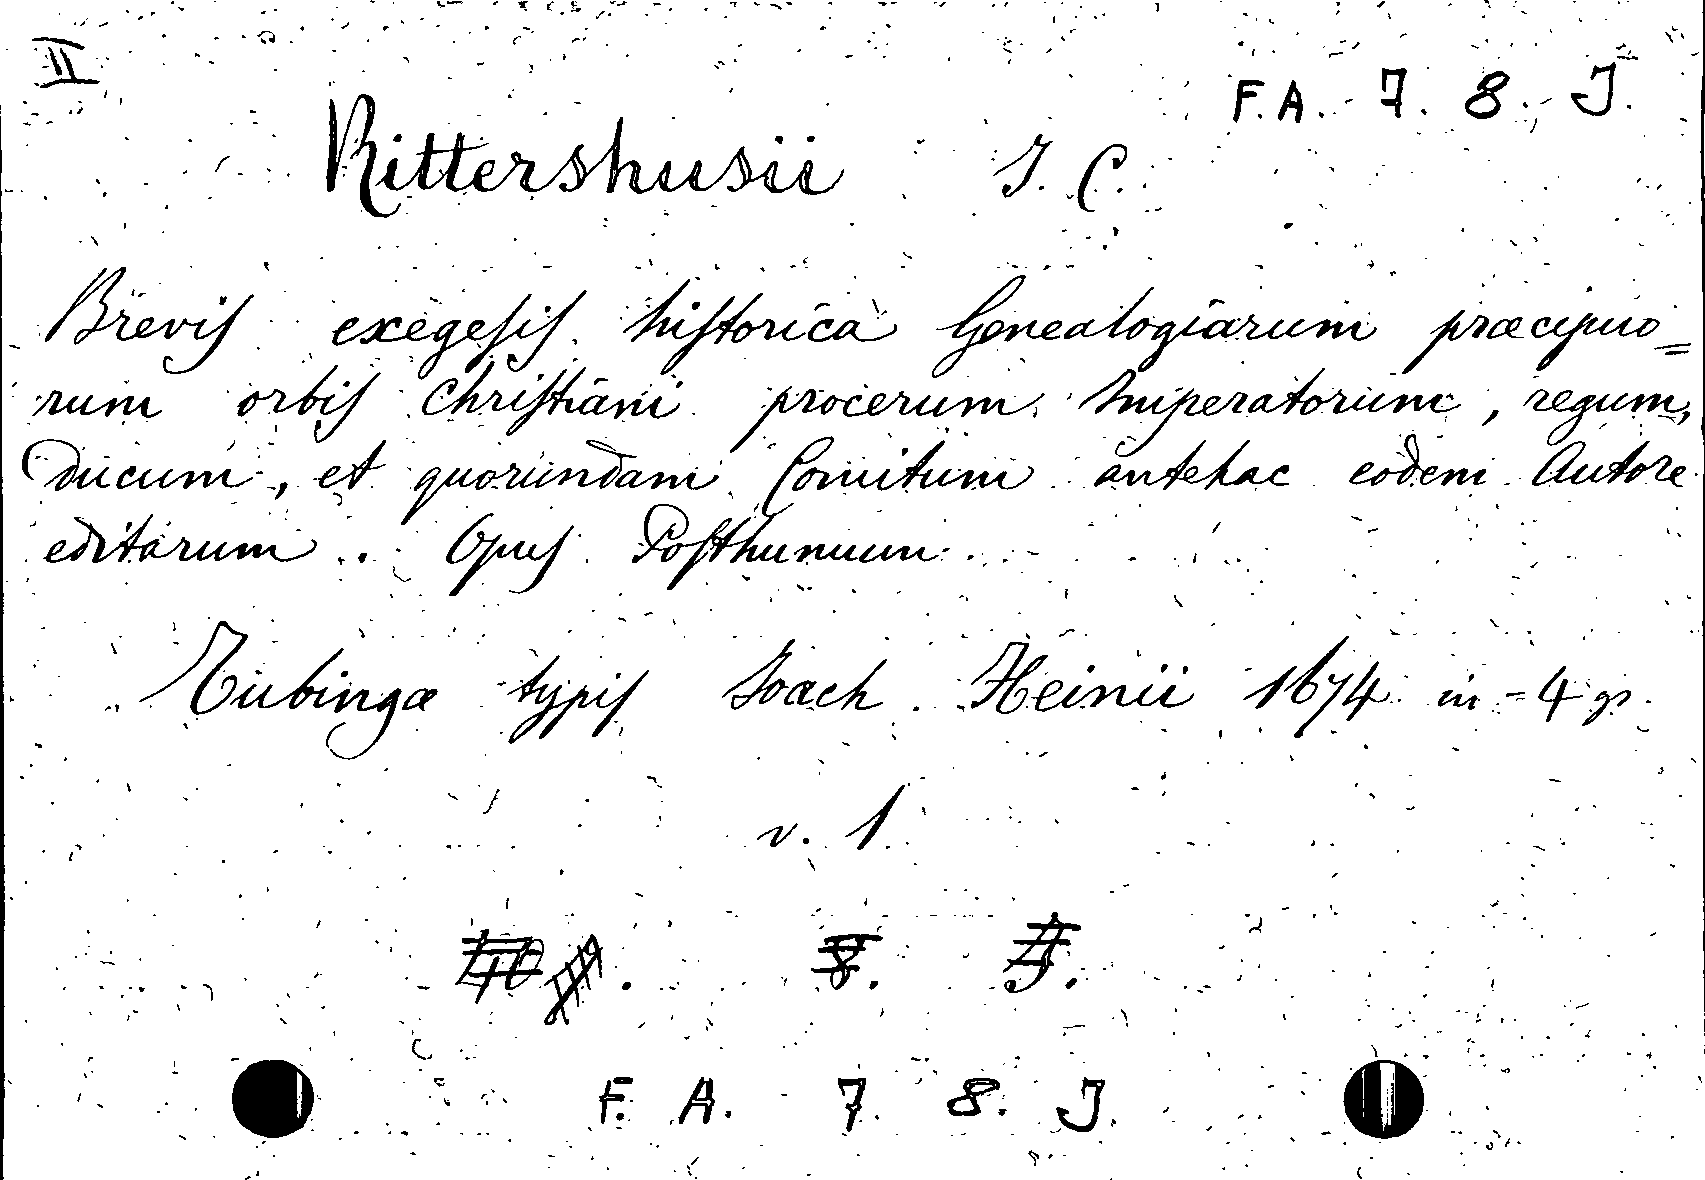 II
F. A. 7. 8. J.
Rittershusii J. C.
Breviſ exegeſiſ hiſtorica Genealogiarum præcipuo=
rum orbiſ Chriſtiani procerum Imperatorum, regum,
Ducum, et quorundam Comitum antehac eodem Autore
editarum. Opuſ Poſthumum.
Tubingæ typiſ Joach Heinii 1674 in-4 gr.
v. 1
8. J.
F. A. 7. 8. J.